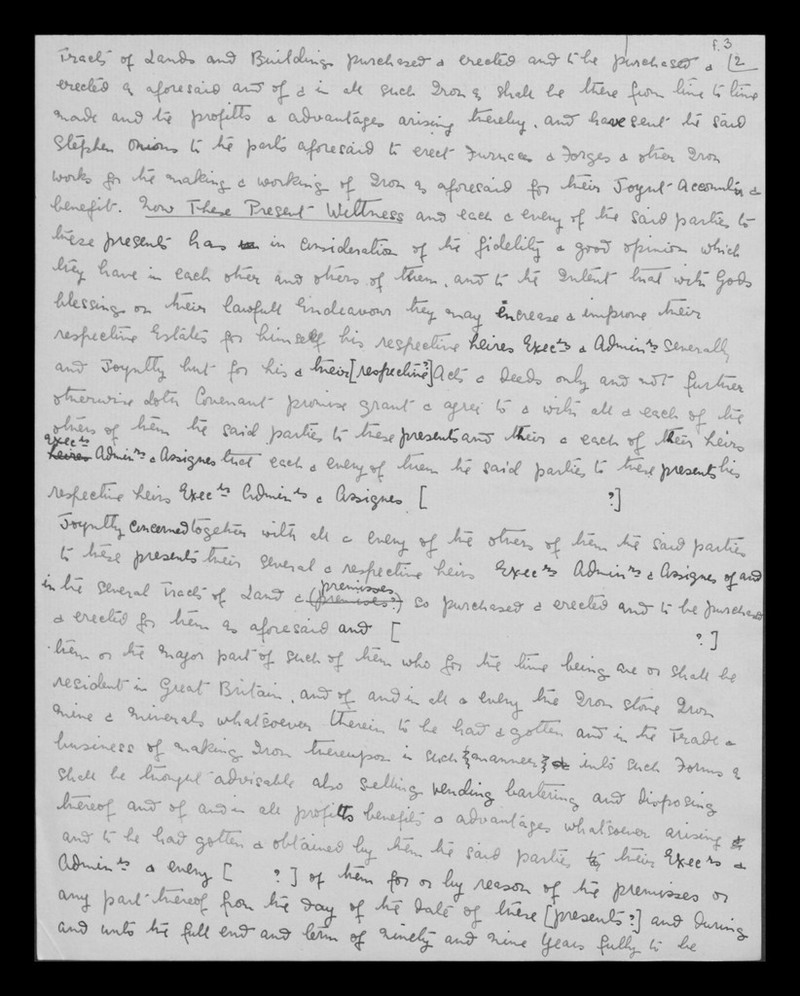 f. 3
Tracts of Lands and Buildings purchased & erected and to be purchased & 2
erected as aforesaid and of & in all such Iron as shall be there from time to time
made and the profitts & advantages arising thereby. and have sent the said
Stephen Onions to the parts aforesaid to erect Furnaces & Forges & other Iron
works for the making & working of Iron as aforesaid for their Joynt Accounts &
benefit. Now These Present Wittness and each & every of the said parties to
these presents has in consideration of the fidelity & good opinion which
they have in each other and others of them. and to the Intent that with Gods
blessings on their lawfull Endeavours they may increase & improve their
respective Estates for himself his respective heires Execrs & Adminrs Severally
and Joyntly but for his & their [respective?] Acts & Deeds only and not further
otherwise doth Covenant promise grant & agree to & with all & each of the
others of them the said parties to these presents and their & each of their heirs
Execrs
heires Adminrs & Assignes that each & every of them the said parties to these presents his
respective heirs Execrs Adminrs & Assignes [ ?]
Joyntly concerned together with all & every of the others of them the said parties
to these presents their several & respective heirs Execrs Adminrs & Assignes of and
premisses
in the several Tracts of Land & (premises?) so purchased & erected and to be purchased
& erected for them as aforesaid and [ ?]
them or the major part of such of them who for the time being are or shall be
resident in Great Britain, and of and in all & every the Iron stone Iron
mine & minerals whatsoever therein to be had & gotten and in the Trade &
business of making Iron thereupon in such {manner} into such Forms as
shall be thought advisable also selling vending bartering and disposing
thereof and of and in all profitts benefits & advantages whatsoever arising
and to be had gotten & obtained by them the said parties their Execrs &
Adminrs & every [ ? ] of them for or by reason of the premisses or
any part thereof from the day of the date of these [presents?] and during
and unto the full end and term of ninety and nine Years fully to be